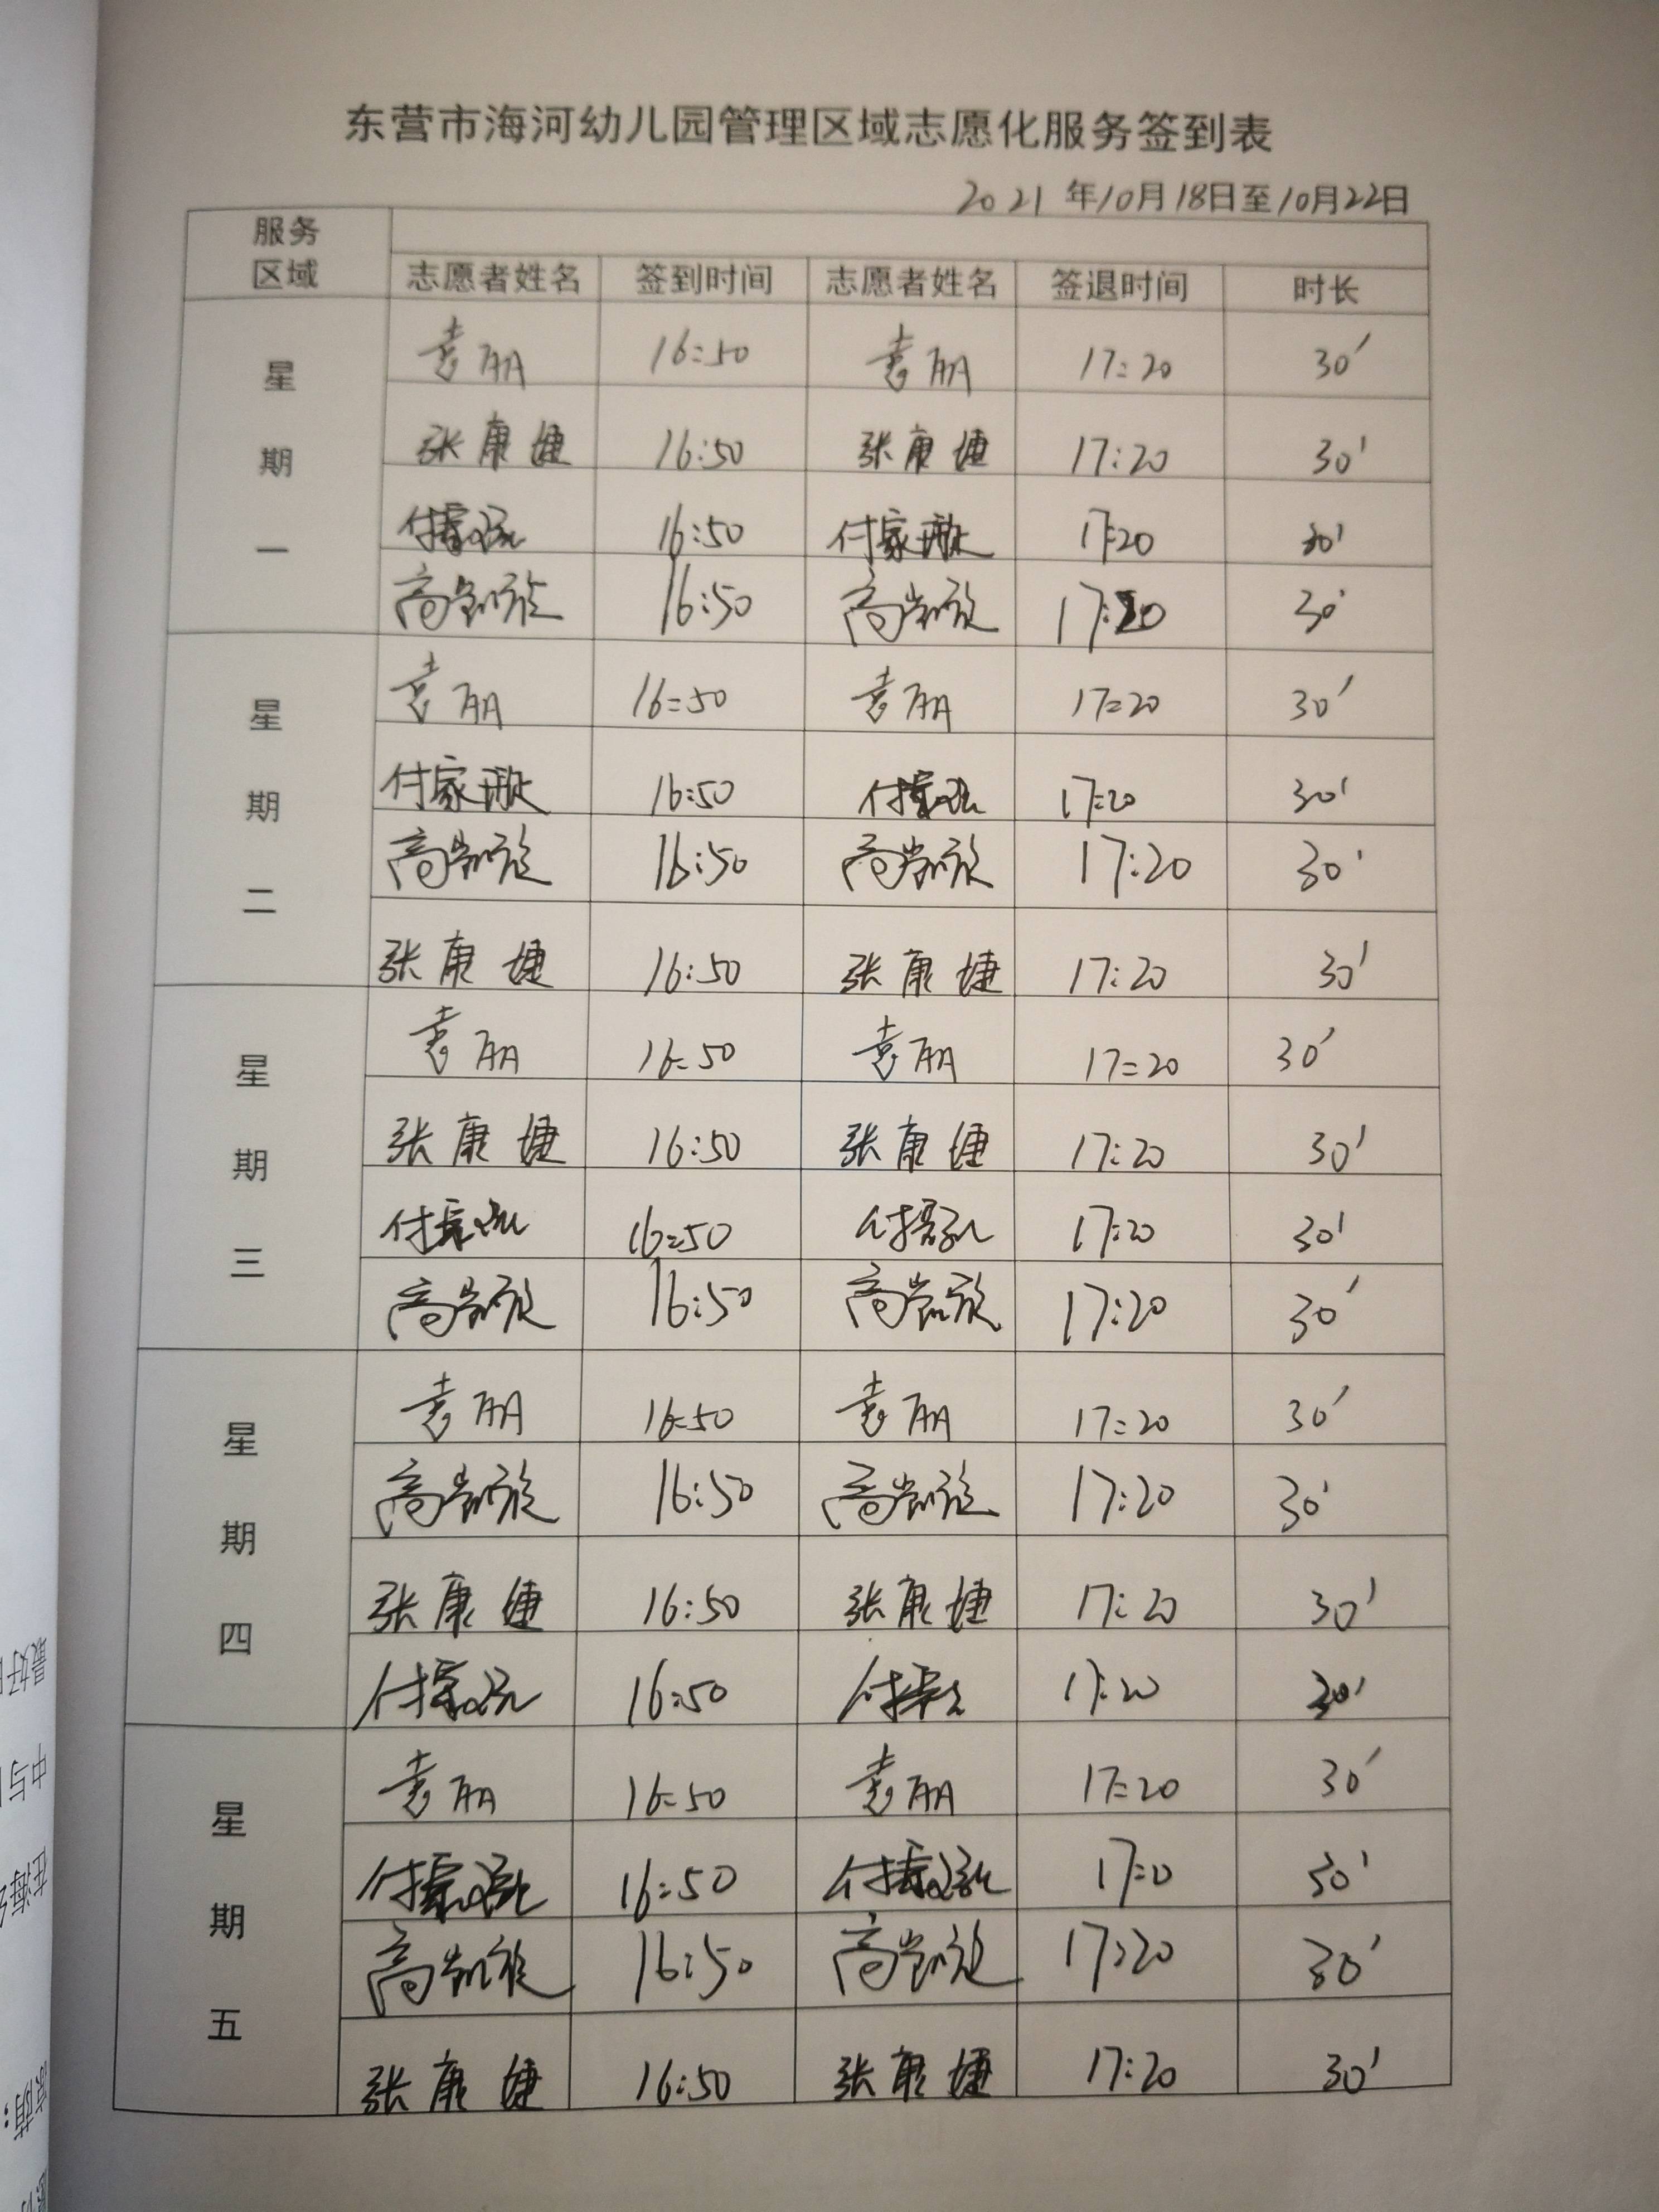 东营市海河幼儿园管理区域志愿化服务签到表
2021年10月18日至10月22日
服务
区域
志愿者姓名 签到时间 志愿者姓名 签退时间 时长
星期一
袁丽 16:50 袁丽 17:20 30'
张康捷 16:50 张康捷 17:20 30'
付家 16:50 付家 17:20 30'
高凯旋 16:50 高凯旋 17:20 30'
星期二
袁丽 16:50 袁丽 17:20 30'
付家 16:50 付家 17:20 30'
高凯旋 16:50 高凯旋 17:20 30'
张康捷 16:50 张康捷 17:20 30'
星期三
袁丽 16:50 袁丽 17:20 30'
张康捷 16:50 张康捷 17:20 30'
付家 16:50 付家 17:20 30'
高凯旋 16:50 高凯旋 17:20 30'
星期四
袁丽 16:50 袁丽 17:20 30'
高凯旋 16:50 高凯旋 17:20 30'
张康捷 16:50 张康捷 17:20 30'
付家 16:50 付家 17:20 30'
星期五
袁丽 16:50 袁丽 17:20 30'
付家 16:50 付家 17:0 30'
高凯旋 16:50 高凯旋 17:20 30'
张康捷 16:50 张康捷 17:20 30'